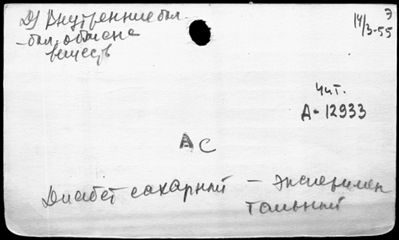 Д) Внутренние бол.
Э
14/3-55
- бол. обмена
веществ
Чит.
А-12933
АС
Диабет сахарный - эксперимен
тальный